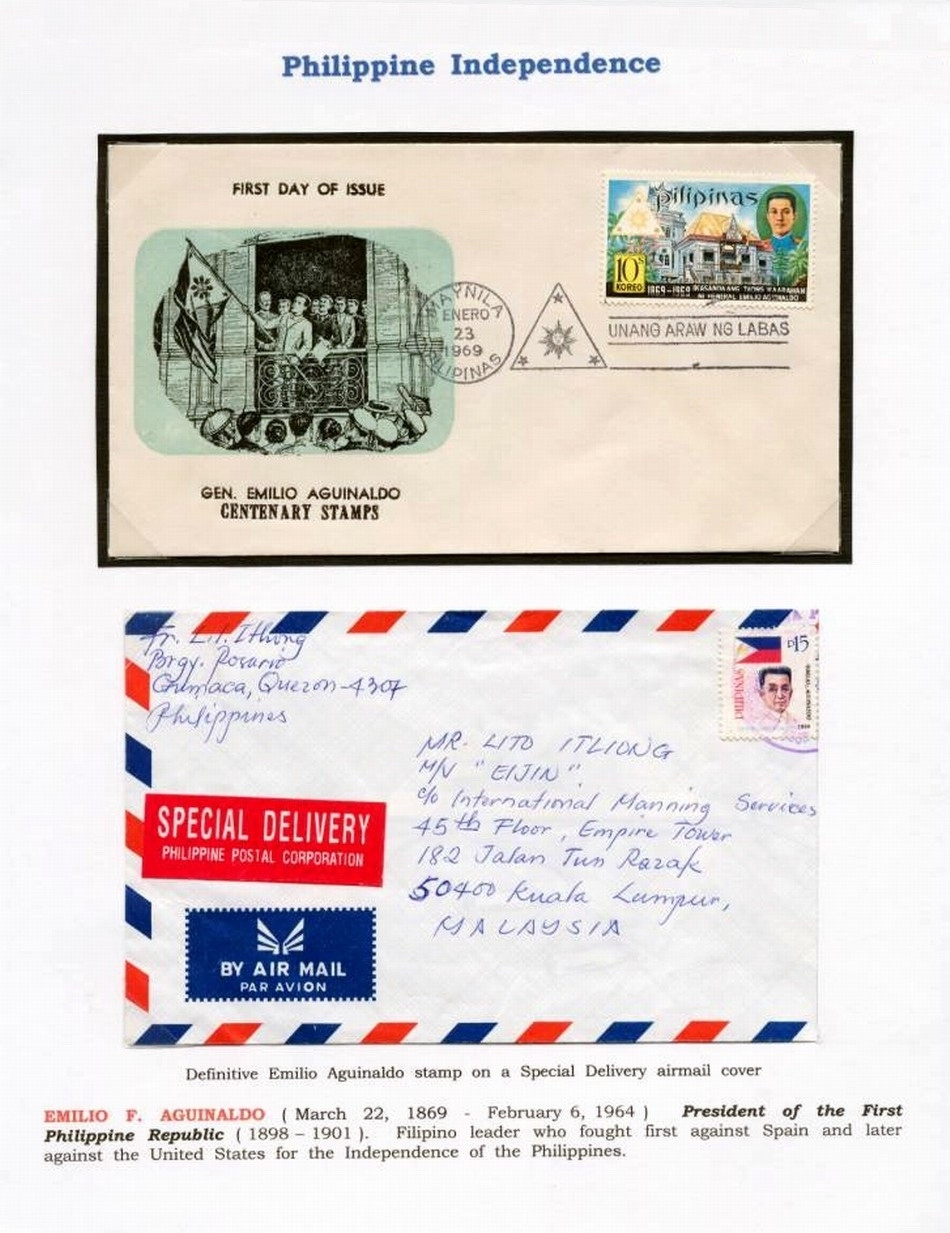 Philippine Independence
FIRST DAY OF ISSUE
pilipinas
10s
KOREO
1869-1969 IKASANDAANG TAONG KAARAWAN
NI HENERAL EMILIO AGUINALDO
MAYNILA
ENERO
23
1969
PILIPINAS
UNANG ARAW NG LABAS
GEN. EMILIO AGUINALDO
CENTENARY STAMPS
Brgy. Rosario
Gumaca, Quezon-4307
Philippines
P15
PILIPINAS
EMILIO AGUINALDO
MR. LITO ITLIONG
M/V "EIJIN"
c/o International Manning Services
45th Floor, Empire Tower
182 Jalan Tun Razak
50400 Kuala Lumpur,
MALAYSIA
SPECIAL DELIVERY
PHILIPPINE POSTAL CORPORATION
BY AIR MAIL
PAR AVION
Definitive Emilio Aguinaldo stamp on a Special Delivery airmail cover
EMILIO F. AGUINALDO ( March 22, 1869 - February 6, 1964 ) President of the First
Philippine Republic ( 1898 – 1901 ). Filipino leader who fought first against Spain and later
against the United States for the Independence of the Philippines.